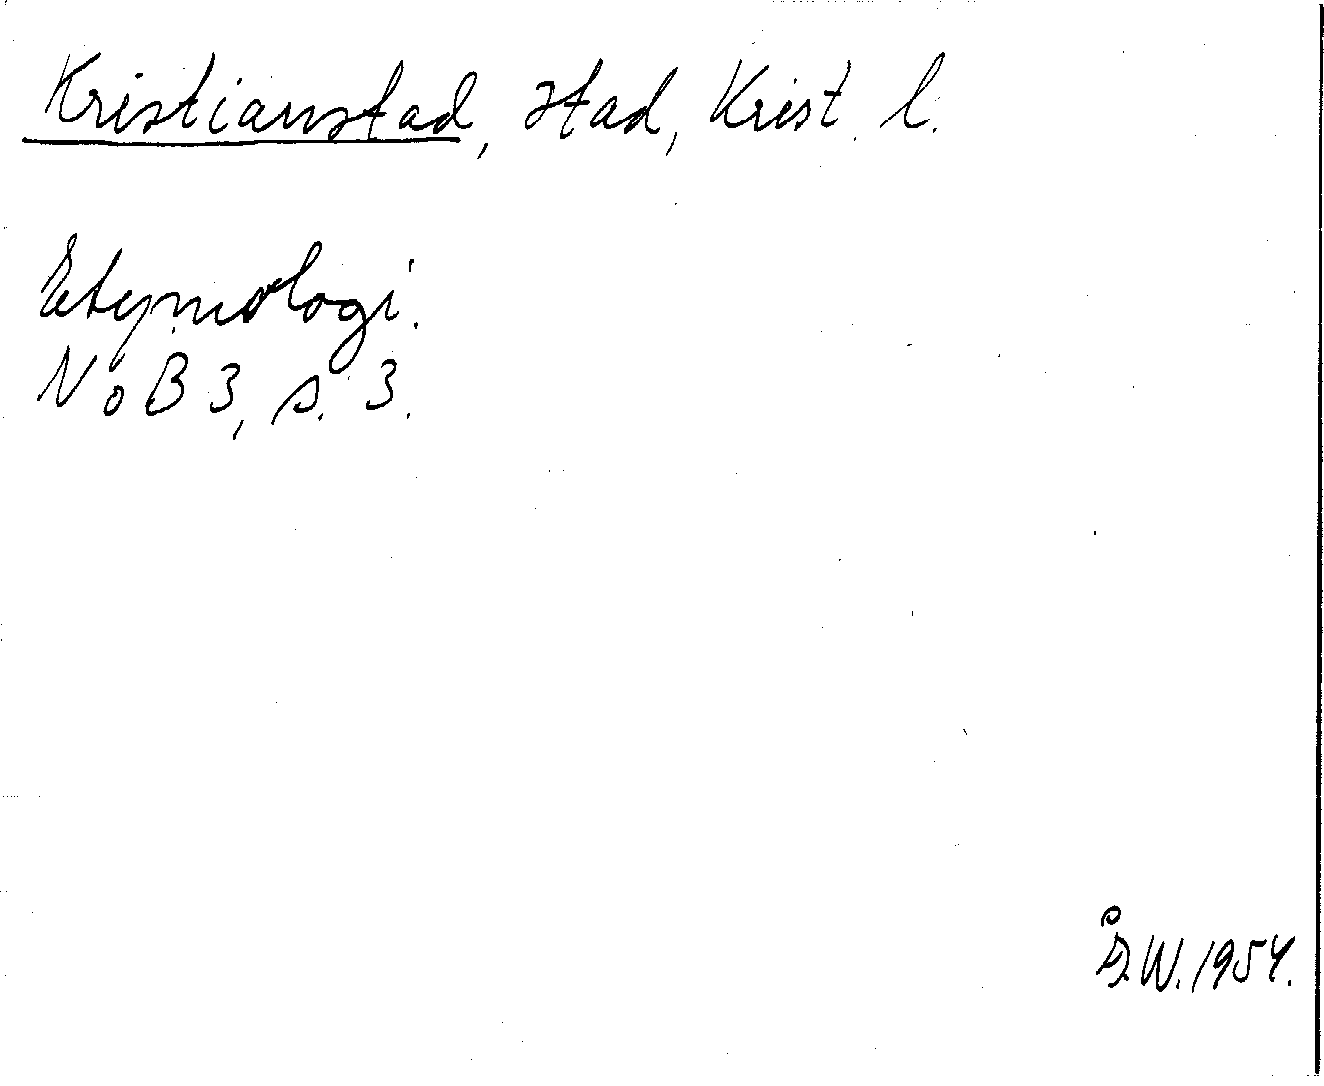 Kristianstad, stad, Krist. l.
Etymologi.
NoB 3, s. 3.
Å.W. 1954.